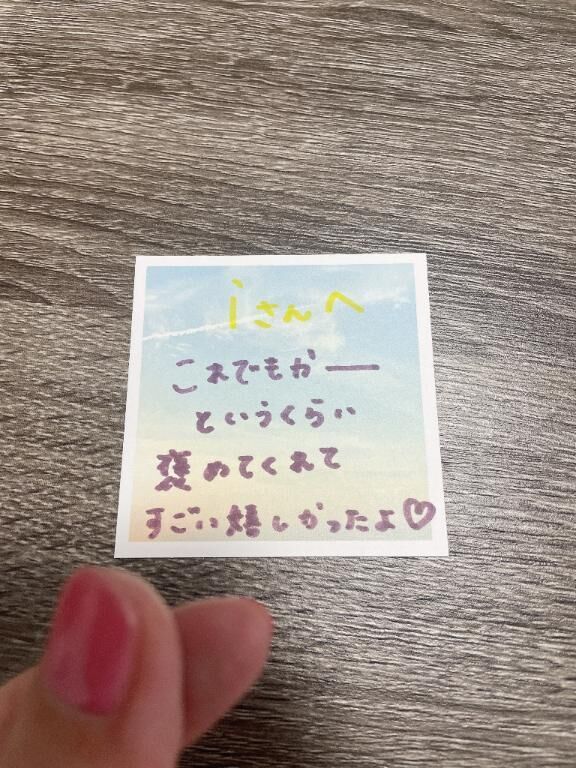 iさんへ
これでもかー
というくらい
褒めてくれて
すごい嬉しかったよ♡